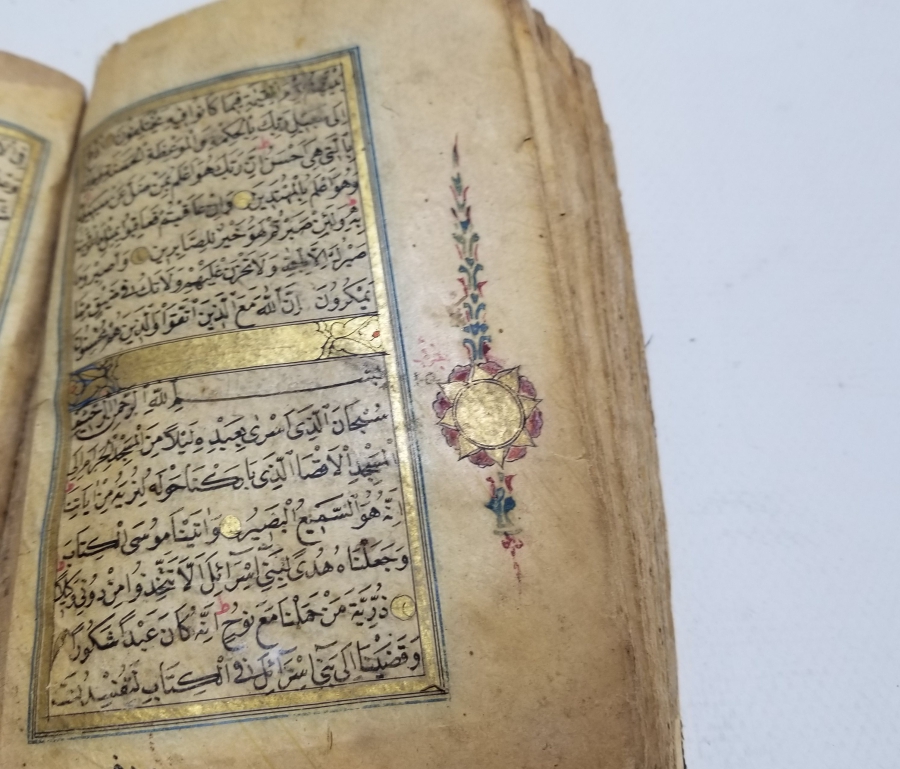 بينهم يوم القيمة فيما كانوا فيه يختلفون ادع
الى سبيل ربك بالحكمة والموعظة الحسنة وجادلهم
بالتي هي احسن ان ربك هو اعلم بمن ضل عن سبيله
وهو اعلم بالمهتدين وان عاقبتم فعاقبوا بمثل ما عوقبتم
به ولئن صبرتم لهو خير للصابرين واصبر وما
صبرك الا بالله ولا تحزن عليهم ولا تك في ضيق مما
يمكرون اِنَّ اللهَ مَعَ الَّذينَ اتَّقَوْا وَالَّذينَ هُمْ مُحْسِنُونَ
بسم الله الرحمن الرحيم
سُبْحَانَ الَّذى اَسْرٰى بِعَبْدِهِ لَيْلاً مِنَ الْمَسْجِدِ الْحَرَامِ اِلَى
الْمَسْجِدِ الْاَقْصَا الَّذى بَارَكْنَا حَوْلَهُ لِنُرِيَهُ مِنْ اٰيَاتِنَا
اِنَّهُ هُوَ السَّميعُ الْبَصيرُ وَاٰتَيْنَا مُوسَى الْكِتَابَ
وَجَعَلْنَاهُ هُدًى لِبَنى اِسْرَائلَ اَلَّا تَتَّخِذُوا مِنْ دُونى وَكيلاً
ذُرِّيَّةَ مَنْ حَمَلْنَا مَعَ نُوحٍ اِنَّهُ كَانَ عَبْداً شَكُوراً
وَقَضَيْنَا اِلٰى بَنى اِسْرَائلَ فِى الْكِتَابِ لَتُفْسِدُنَّ